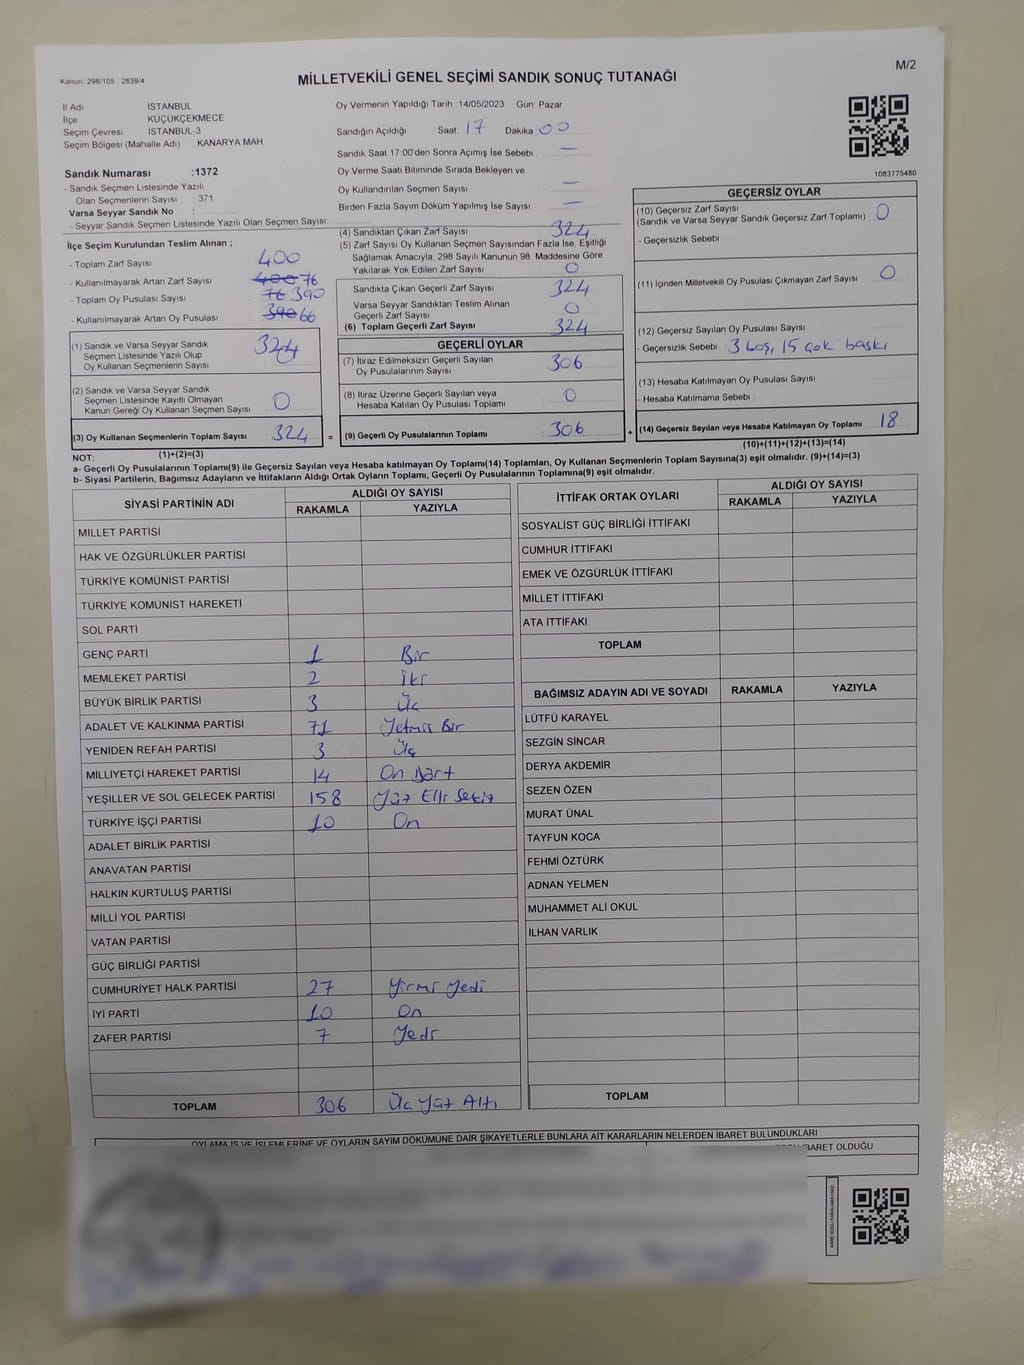 Kanun: 298/105 , 2839/4
MİLLETVEKİLİ GENEL SEÇİMİ SANDIK SONUÇ TUTANAĞI
M/2
İl Adı İSTANBUL
İlçe KÜÇÜKÇEKMECE
Seçim Çevresi İSTANBUL-3
Seçim Bölgesi (Mahalle Adı) KANARYA MAH
Sandık Numarası :1372
- Sandık Seçmen Listesinde Yazılı
Olan Seçmenlerin Sayısı : 371
Varsa Seyyar Sandık No :
- Seyyar Sandık Seçmen Listesinde Yazılı Olan Seçmen Sayısı:
İlçe Seçim Kurulundan Teslim Alınan ;
- Toplam Zarf Sayısı 400
- Kullanılmayarak Artan Zarf Sayısı 400 76
- Toplam Oy Pusulası Sayısı 76 390
- Kullanılmayarak Artan Oy Pusulası 390 66
(1) Sandık ve Varsa Seyyar Sandık
Seçmen Listesinde Yazılı Olup
Oy Kullanan Seçmenlerin Sayısı 324
(2) Sandık ve Varsa Seyyar Sandık
Seçmen Listesinde Kayıtlı Olmayan
Kanun Gereği Oy Kullanan Seçmen Sayısı 0
(3) Oy Kullanan Seçmenlerin Toplam Sayısı 324 =
(1)+(2)=(3)
Oy Vermenin Yapıldığı Tarih 14/05/2023 Gün: Pazar
Sandığın Açıldığı Saat: 17 Dakika 00
Sandık Saat 17:00'den Sonra Açımış İse Sebebi : —
Oy Verme Saati Bitiminde Sırada Bekleyen ve
Oy Kullandırılan Seçmen Sayısı : —
Birden Fazla Sayım Döküm Yapılmış İse Sayısı : —
(4) Sandıktan Çıkan Zarf Sayısı 324
(5) Zarf Sayısı Oy Kullanan Seçmen Sayısından Fazla İse, Eşitliği
Sağlamak Amacıyla, 298 Sayılı Kanunun 98. Maddesine Göre
Yakılarak Yok Edilen Zarf Sayısı 0
Sandıkta Çıkan Geçerli Zarf Sayısı 324
Varsa Seyyar Sandıktan Teslim Alınan
Geçerli Zarf Sayısı 0
(6) Toplam Geçerli Zarf Sayısı 324
GEÇERLİ OYLAR
(7) İtiraz Edilmeksizin Geçerli Sayılan
Oy Pusulalarının Sayısı 306
(8) İtiraz Üzerine Geçerli Sayılan veya
Hesaba Katılan Oy Pusulası Toplamı 0
(9) Geçerli Oy Pusulalarının Toplamı 306 +
1083775480
GEÇERSİZ OYLAR
(10) Geçersiz Zarf Sayısı
(Sandık ve Varsa Seyyar Sandık Geçersiz Zarf Toplamı) 0
- Geçersizlik Sebebi
(11) İçinden Milletvekili Oy Pusulası Çıkmayan Zarf Sayısı 0
(12) Geçersiz Sayılan Oy Pusulası Sayısı
- Geçersizlik Sebebi 3 boş, 15 çok baskı
(13) Hesaba Katılmayan Oy Pusulası Sayısı
- Hesaba Katılmama Sebebi :
(14) Geçersiz Sayılan veya Hesaba Katılmayan Oy Toplamı 18
(10)+(11)+(12)+(13)=(14)
NOT:
a- Geçerli Oy Pusulalarının Toplamı(9) ile Geçersiz Sayılan veya Hesaba katılmayan Oy Toplamı(14) Toplamları, Oy Kullanan Seçmenlerin Toplam Sayısına(3) eşit olmalıdır. (9)+(14)=(3)
b- Siyasi Partilerin, Bağımsız Adayların ve İttifakların Aldığı Ortak Oyların Toplamı, Geçerli Oy Pusulalarının Toplamına(9) eşit olmalıdır.
SİYASİ PARTİNİN ADI ALDIĞI OY SAYISI
RAKAMLA YAZIYLA
MİLLET PARTİSİ
HAK VE ÖZGÜRLÜKLER PARTİSİ
TÜRKİYE KOMÜNİST PARTİSİ
TÜRKİYE KOMÜNİST HAREKETİ
SOL PARTİ
GENÇ PARTİ 1 Bir
MEMLEKET PARTİSİ 2 İki
BÜYÜK BİRLİK PARTİSİ 3 Üç
ADALET VE KALKINMA PARTİSİ 71 Yetmiş Bir
YENİDEN REFAH PARTİSİ 3 Üç
MİLLİYETÇİ HAREKET PARTİSİ 14 On Dört
YEŞİLLER VE SOL GELECEK PARTİSİ 158 Yüz Elli Sekiz
TÜRKİYE İŞÇİ PARTİSİ 10 On
ADALET BİRLİK PARTİSİ
ANAVATAN PARTİSİ
HALKIN KURTULUŞ PARTİSİ
MİLLİ YOL PARTİSİ
VATAN PARTİSİ
GÜÇ BİRLİĞİ PARTİSİ
CUMHURİYET HALK PARTİSİ 27 Yirmi Yedi
İYİ PARTİ 10 On
ZAFER PARTİSİ 7 Yedi
TOPLAM 306 Üç Yüz Altı
İTTİFAK ORTAK OYLARI ALDIĞI OY SAYISI
RAKAMLA YAZIYLA
SOSYALİST GÜÇ BİRLİĞİ İTTİFAKI
CUMHUR İTTİFAKI
EMEK VE ÖZGÜRLÜK İTTİFAKI
MİLLET İTTİFAKI
ATA İTTİFAKI
TOPLAM
BAĞIMSIZ ADAYIN ADI VE SOYADI RAKAMLA YAZIYLA
LÜTFÜ KARAYEL
SEZGİN SİNCAR
DERYA AKDEMİR
SEZEN ÖZEN
MURAT ÜNAL
TAYFUN KOCA
FEHMİ ÖZTÜRK
ADNAN YELMEN
MUHAMMET ALİ OKUL
İLHAN VARLIK
TOPLAM
OYLAMA İŞ VE İŞLEMLERİNE VE OYLARIN SAYIM DÖKÜMÜNE DAİR ŞİKAYETLERLE BUNLARA AİT KARARLARIN NELERDEN İBARET BULUNDUKLARI
İBARET OLDUĞU